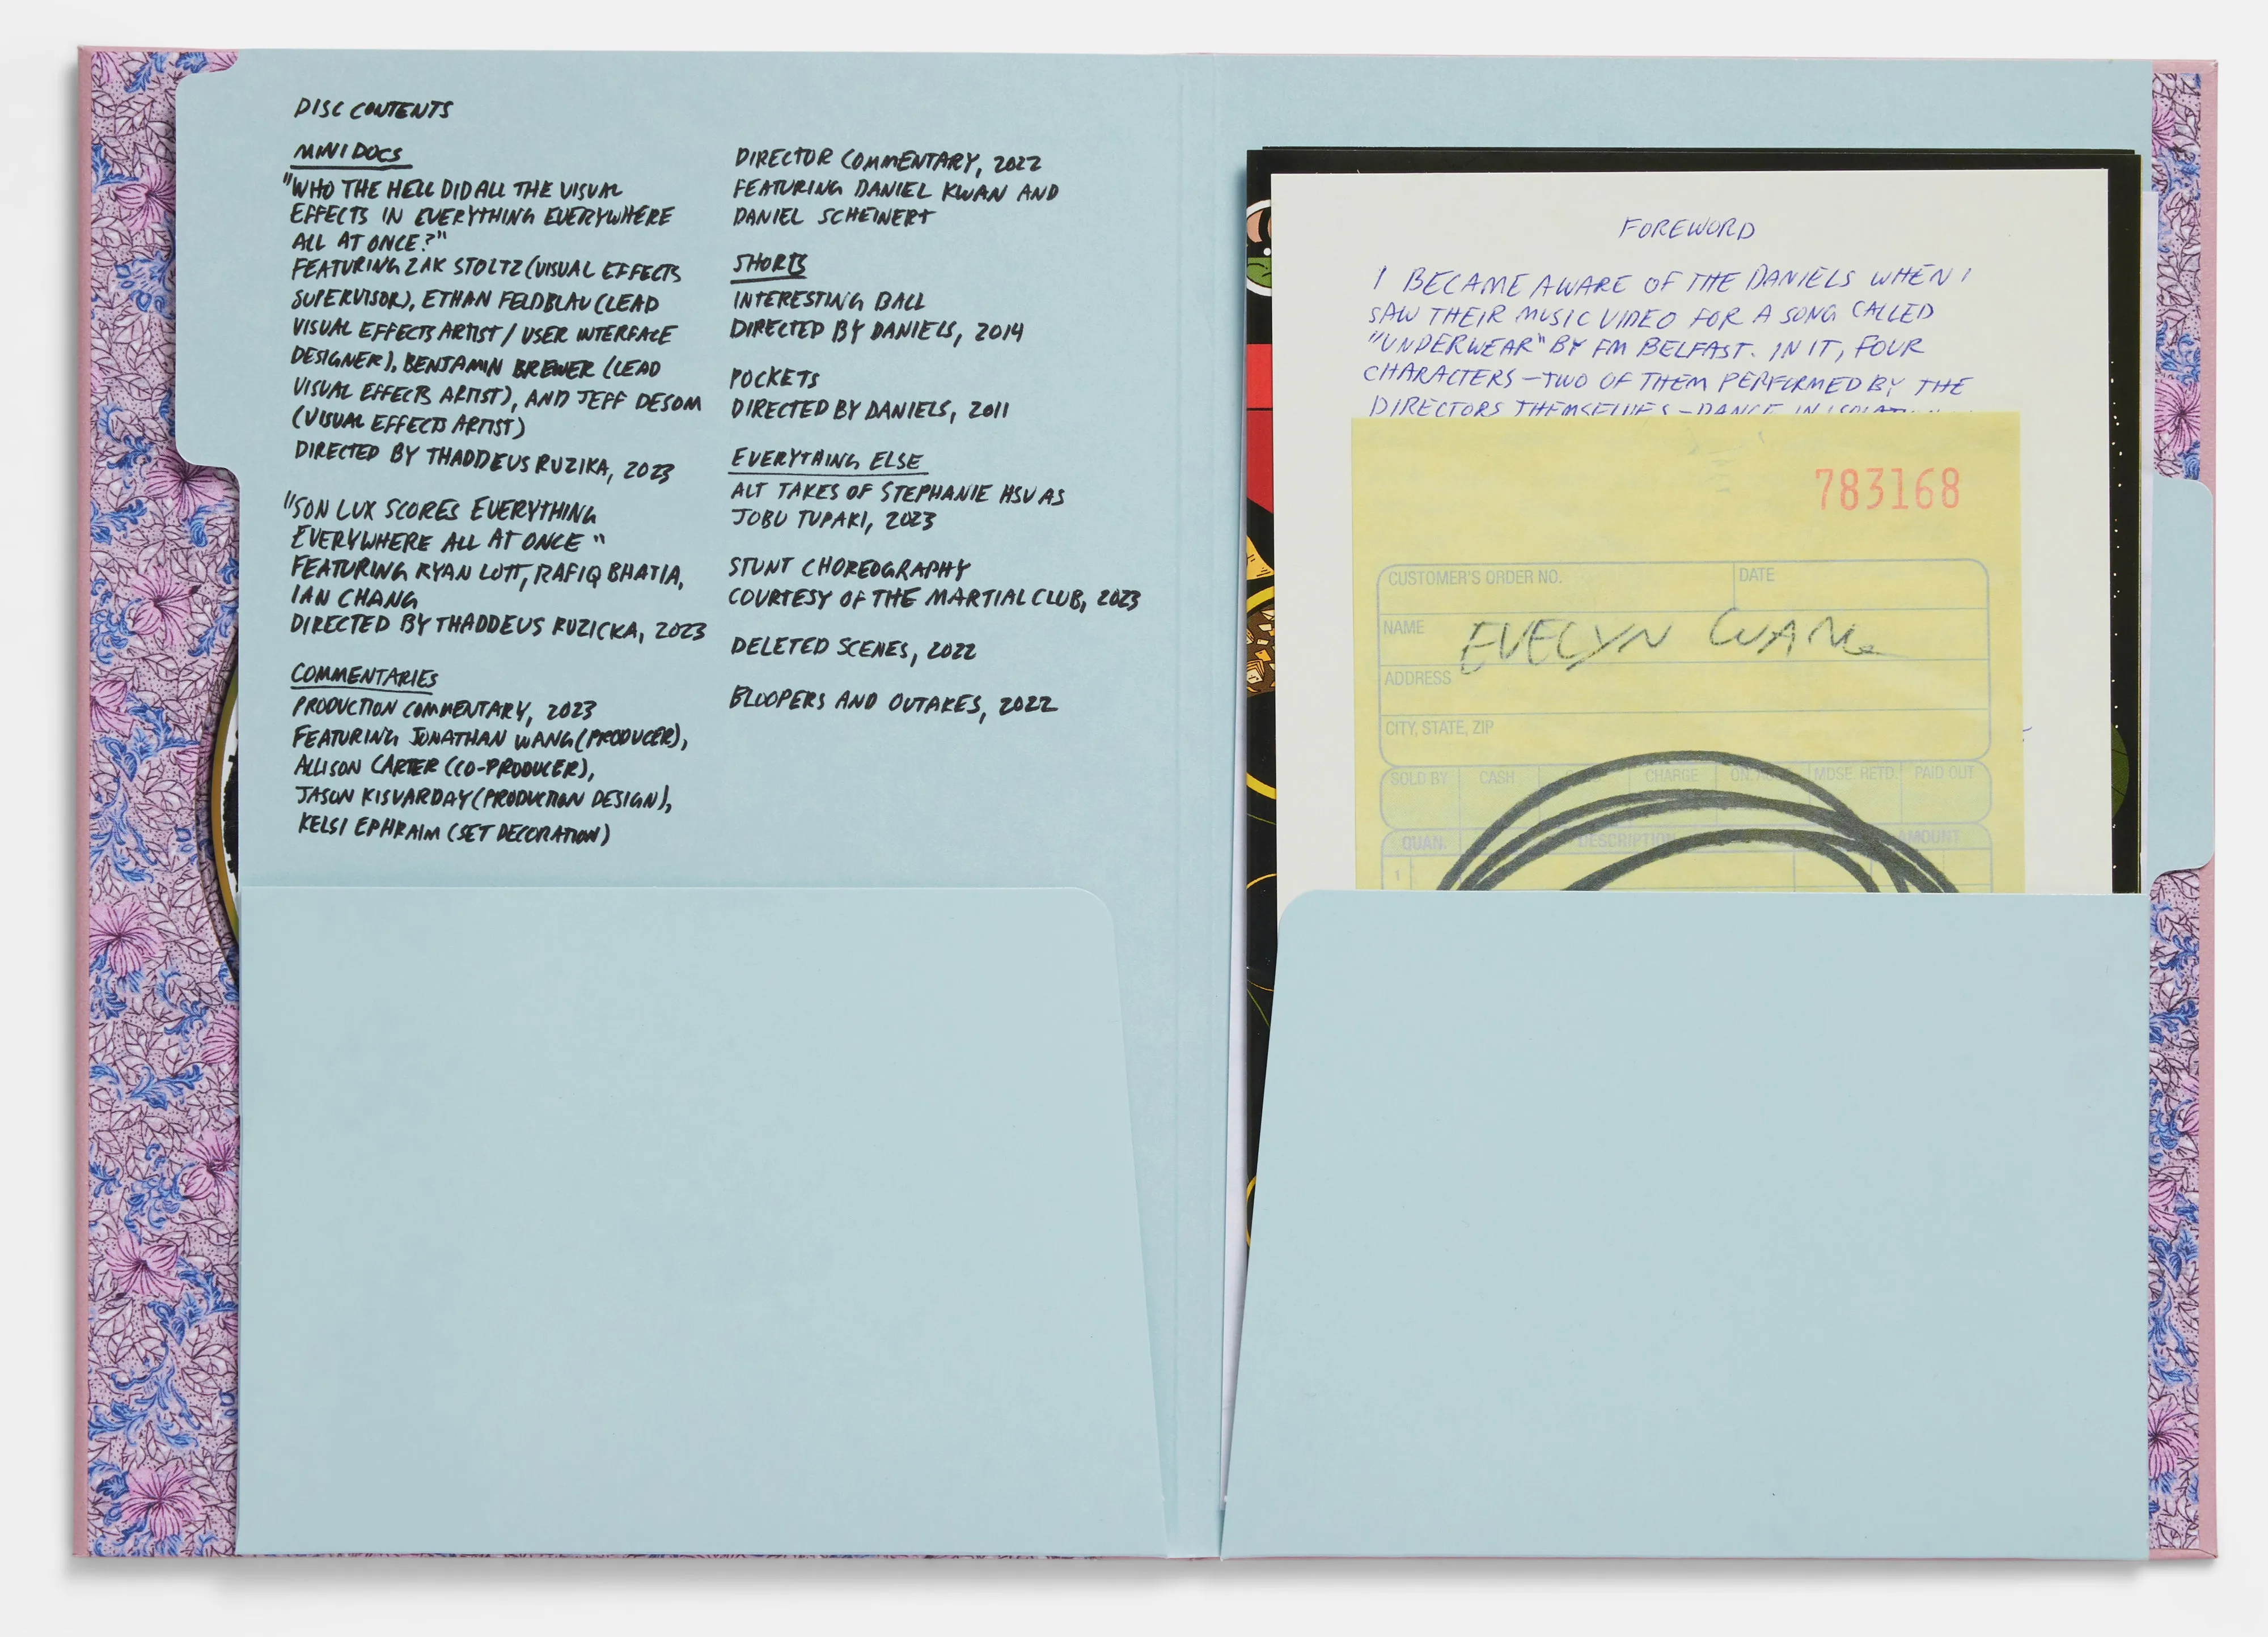 DISC CONTENTS
MINI DOCS
"WHO THE HELL DID ALL THE VISUAL
EFFECTS IN EVERYTHING EVERYWHERE
ALL AT ONCE?"
FEATURING ZAK STOLTZ (VISUAL EFFECTS
SUPERVISOR), ETHAN FELDBLAU (LEAD
VISUAL EFFECTS ARTIST / USER INTERFACE
DESIGNER), BENJAMIN BREWER (LEAD
VISUAL EFFECTS ARTIST), AND JEFF DESOM
(VISUAL EFFECTS ARTIST)
DIRECTED BY THADDEUS RUZIKA, 2023
"SON LUX SCORES EVERYTHING
EVERYWHERE ALL AT ONCE"
FEATURING RYAN LOTT, RAFIQ BHATIA,
IAN CHANG
DIRECTED BY THADDEUS RUZICKA, 2023
COMMENTARIES
PRODUCTION COMMENTARY, 2023
FEATURING JONATHAN WANG (PRODUCER),
ALLISON CARTER (CO-PRODUCER),
JASON KISVARDAY (PRODUCTION DESIGN),
KELSI EPHRAIM (SET DECORATION)
DIRECTOR COMMENTARY, 2022
FEATURING DANIEL KWAN AND
DANIEL SCHEINERT
SHORTS
INTERESTING BALL
DIRECTED BY DANIELS, 2014
POCKETS
DIRECTED BY DANIELS, 2011
EVERYTHING ELSE
ALT TAKES OF STEPHANIE HSU AS
JOBU TUPAKI, 2023
STUNT CHOREOGRAPHY
COURTESY OF THE MARTIAL CLUB, 2023
DELETED SCENES, 2022
BLOOPERS AND OUTAKES, 2022
FOREWORD
I BECAME AWARE OF THE DANIELS WHEN I
SAW THEIR MUSIC VIDEO FOR A SONG CALLED
"UNDERWEAR" BY FM BELFAST. IN IT, FOUR
CHARACTERS – TWO OF THEM PERFORMED BY THE
DIRECTORS THEMSELVES – DANCE IN
783168
CUSTOMER'S ORDER NO. DATE
NAME EVELYN WANG
ADDRESS
CITY, STATE, ZIP
SOLD BY CASH CHARGE MDSE. RETD. PAID OUT
QUAN. DESCRIPTION AMOUNT
1